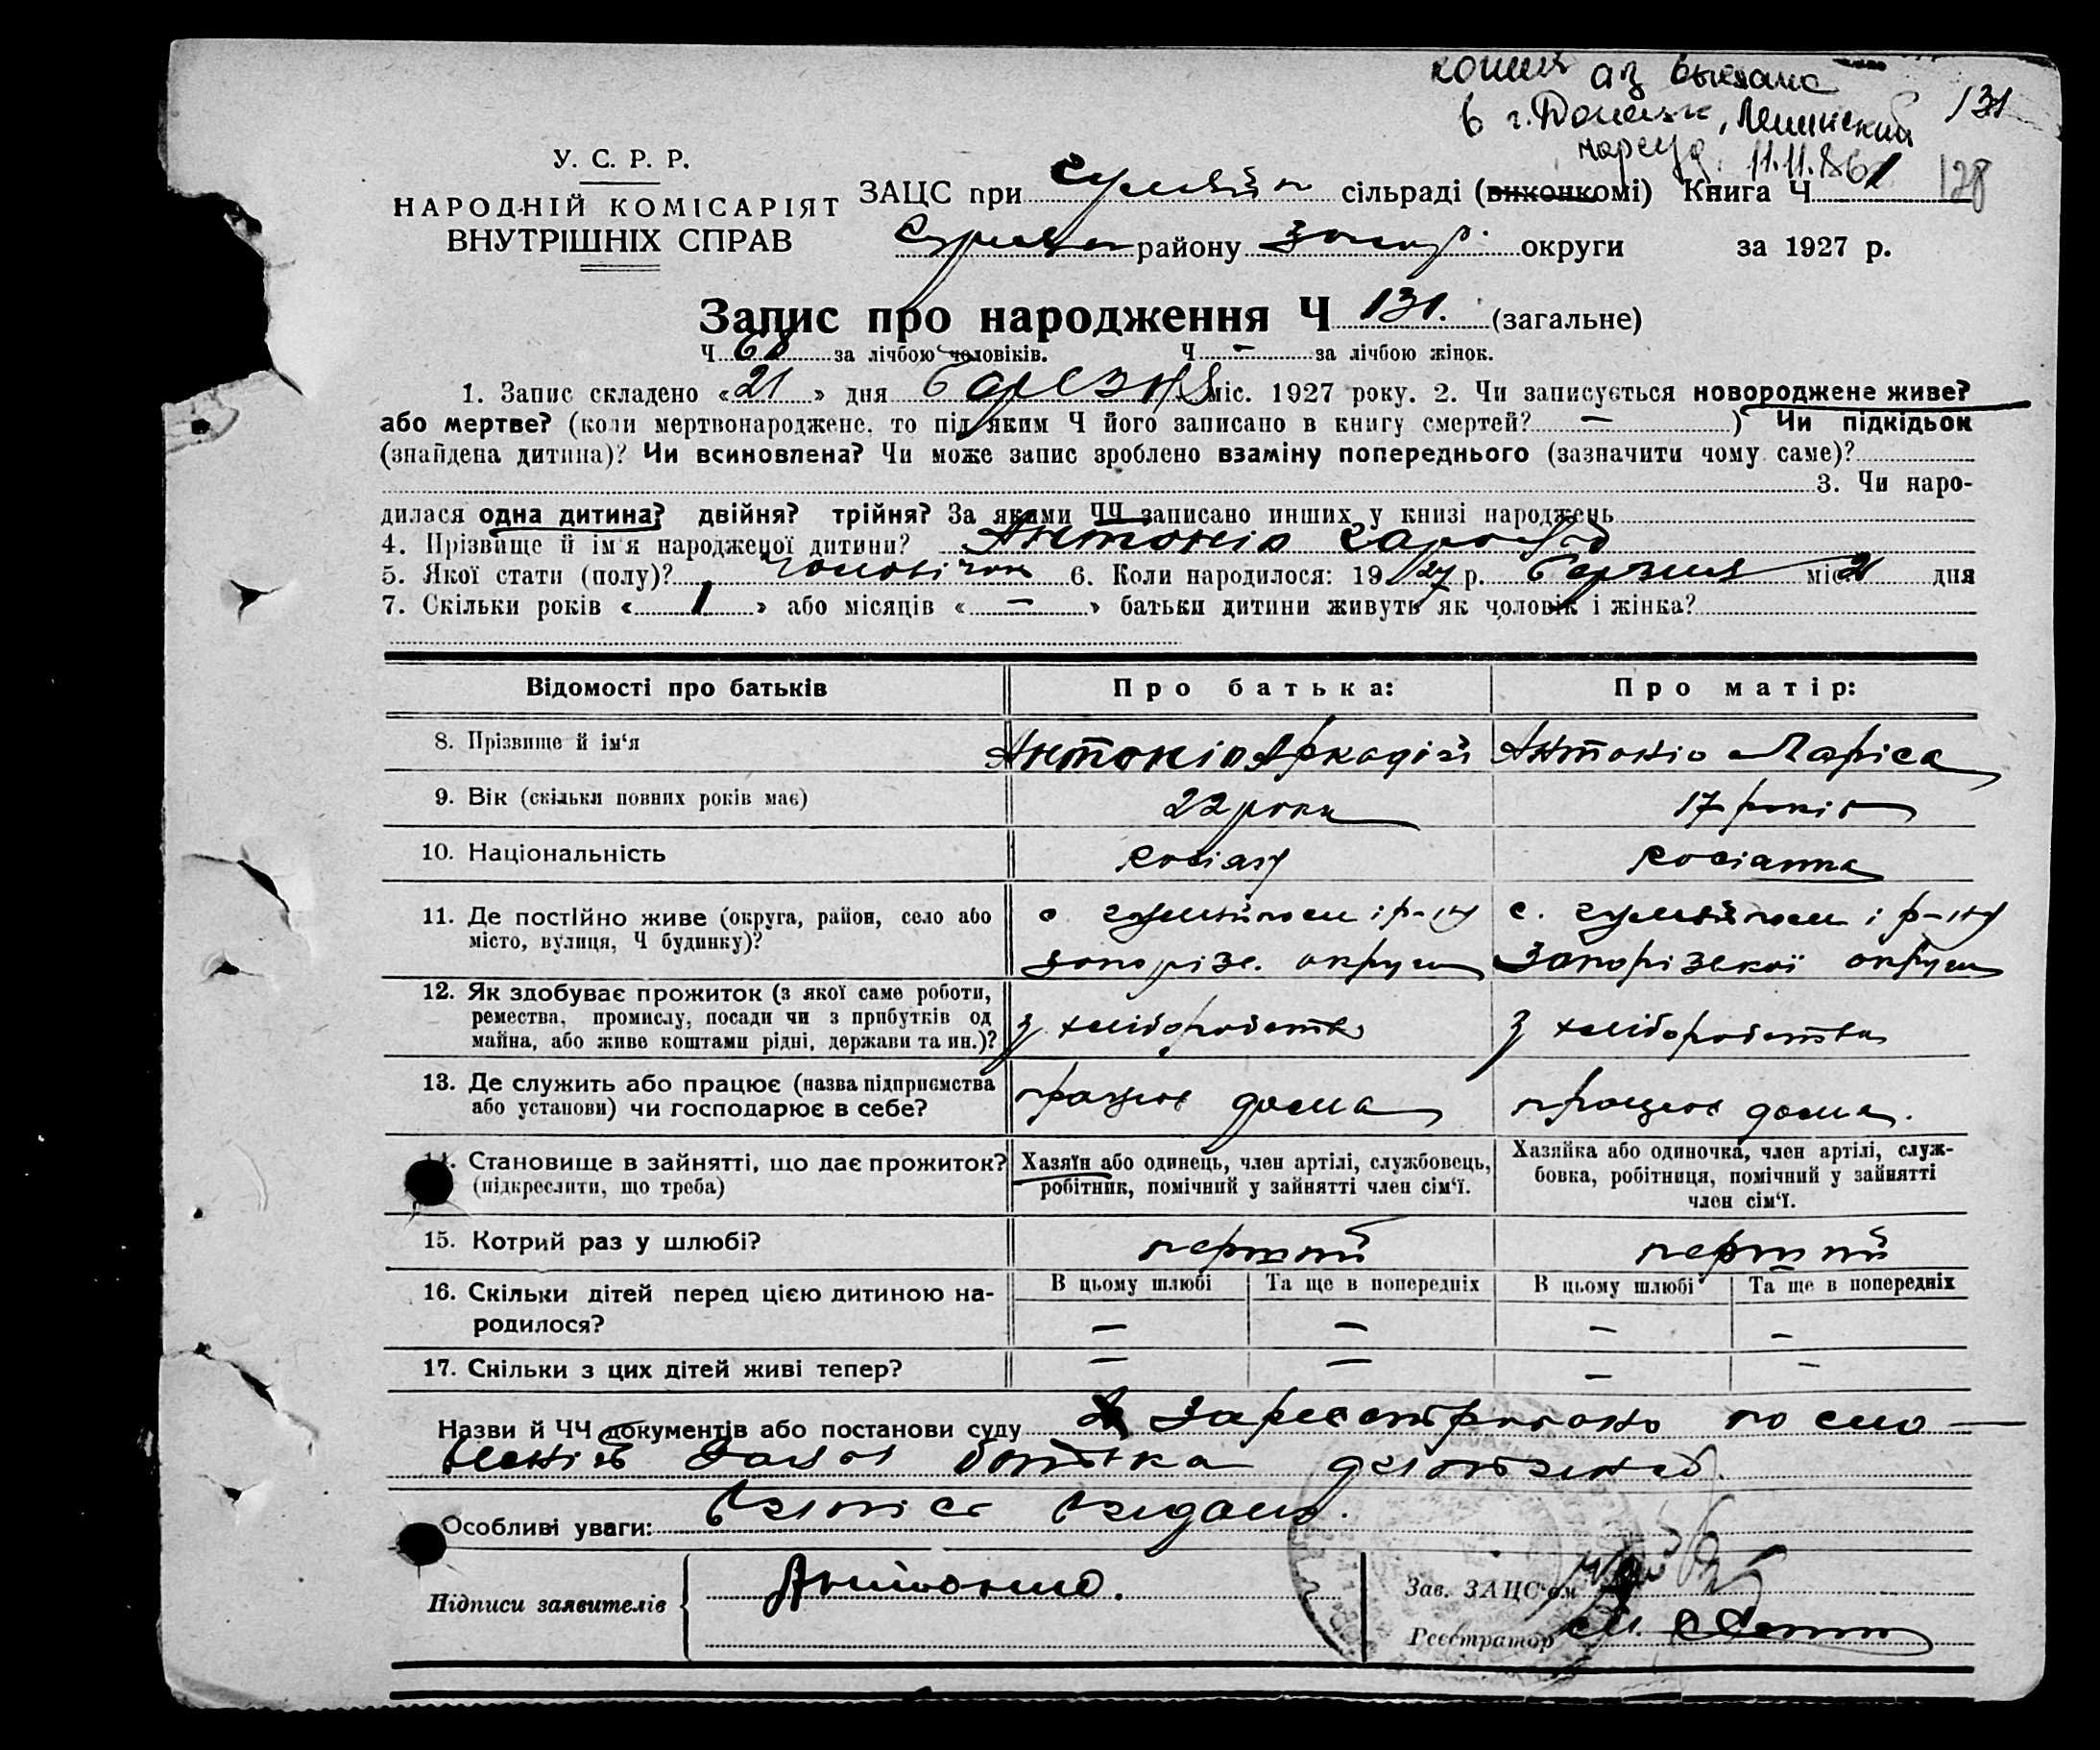 копия аз выслана
в г. Донецк, Ленинский 131
нарсуд. 11.11.861 128
У. С. Р. Р.
НАРОДНІЙ КОМІСАРІЯТ
ВНУТРІШНІХ СПРАВ
ЗАЦС при сільраді (виконкомі) Книга Ч
району Запор. округи за 1927 р.
Запис про народження Ч 131. (загальне)
Ч за лічбою чоловіків. Ч – за лічбою жінок.
1. Запис складено «21» дня березня міс. 1927 року. 2. Чи записується новороджене живе?
або мертве? (коли мертвонароджене, то під яким Ч його записано в книгу смертей? – ) Чи підкідьок
(знайдена дитина)? Чи всиновлена? Чи може запис зроблено взаміну попереднього (зазначити чому саме)?
3. Чи наро-
дилася одна дитина? двійня? трійня? За якими ЧЧ записано инших у книзі народжень
4. Прізвище й ім'я народженої дитини? Антоніо
5. Якої стати (полу)? чоловічої 6. Коли народилося: 1927 р. березня міс. дня
7. Скільки років «1» або місяців «–» батьки дитини живуть як чоловік і жінка?
Відомості про батьків Про батька: Про матір:
8. Прізвище й ім‘я Антоніо Аркадій Антоніо Ларіса
9. Вік (скільки повних років має) 22 роки 17 років
10. Національність росіян росіанка
11. Де постійно живе (округа, район, село або с. і р-ну с. і р-ну
місто, вулиця, Ч будинку)? запорізс. округи Запорізької округи
12. Як здобуває прожиток (з якої саме роботи,
ремества, промислу, посади чи з прибутків од з хліборобства з хліборобства
майна, або живе коштами рідні, держави та ин.)?
13. Де служить або працює (назва підприємства працює дома працює дома.
або установи) чи господарює в себе?
14. Становище в зайнятті, що дає прожиток? Хазяїн або одинець, член артілі, службовець, Хазяйка або одиночка, член артілі, служ-
(підкреслити, що треба) робітник, помічний у зайнятті член сім‘ї. бовка, робітниця, помічний у зайнятті
член сім‘ї.
15. Котрий раз у шлюбі? перший перший
16. Скільки дітей перед цією дитиною на- В цьому шлюбі Та ще в попередніх В цьому шлюбі Та ще в попередніх
родилося? – – – –
17. Скільки з цих дітей живі тепер? – – – –
Назви й ЧЧ документів або постанови суду Зареєстровано по сло-
батька
Особливі уваги:
Підписи заявителів Антонио.
Зав. ЗАЦС‘ом
Реєстратор